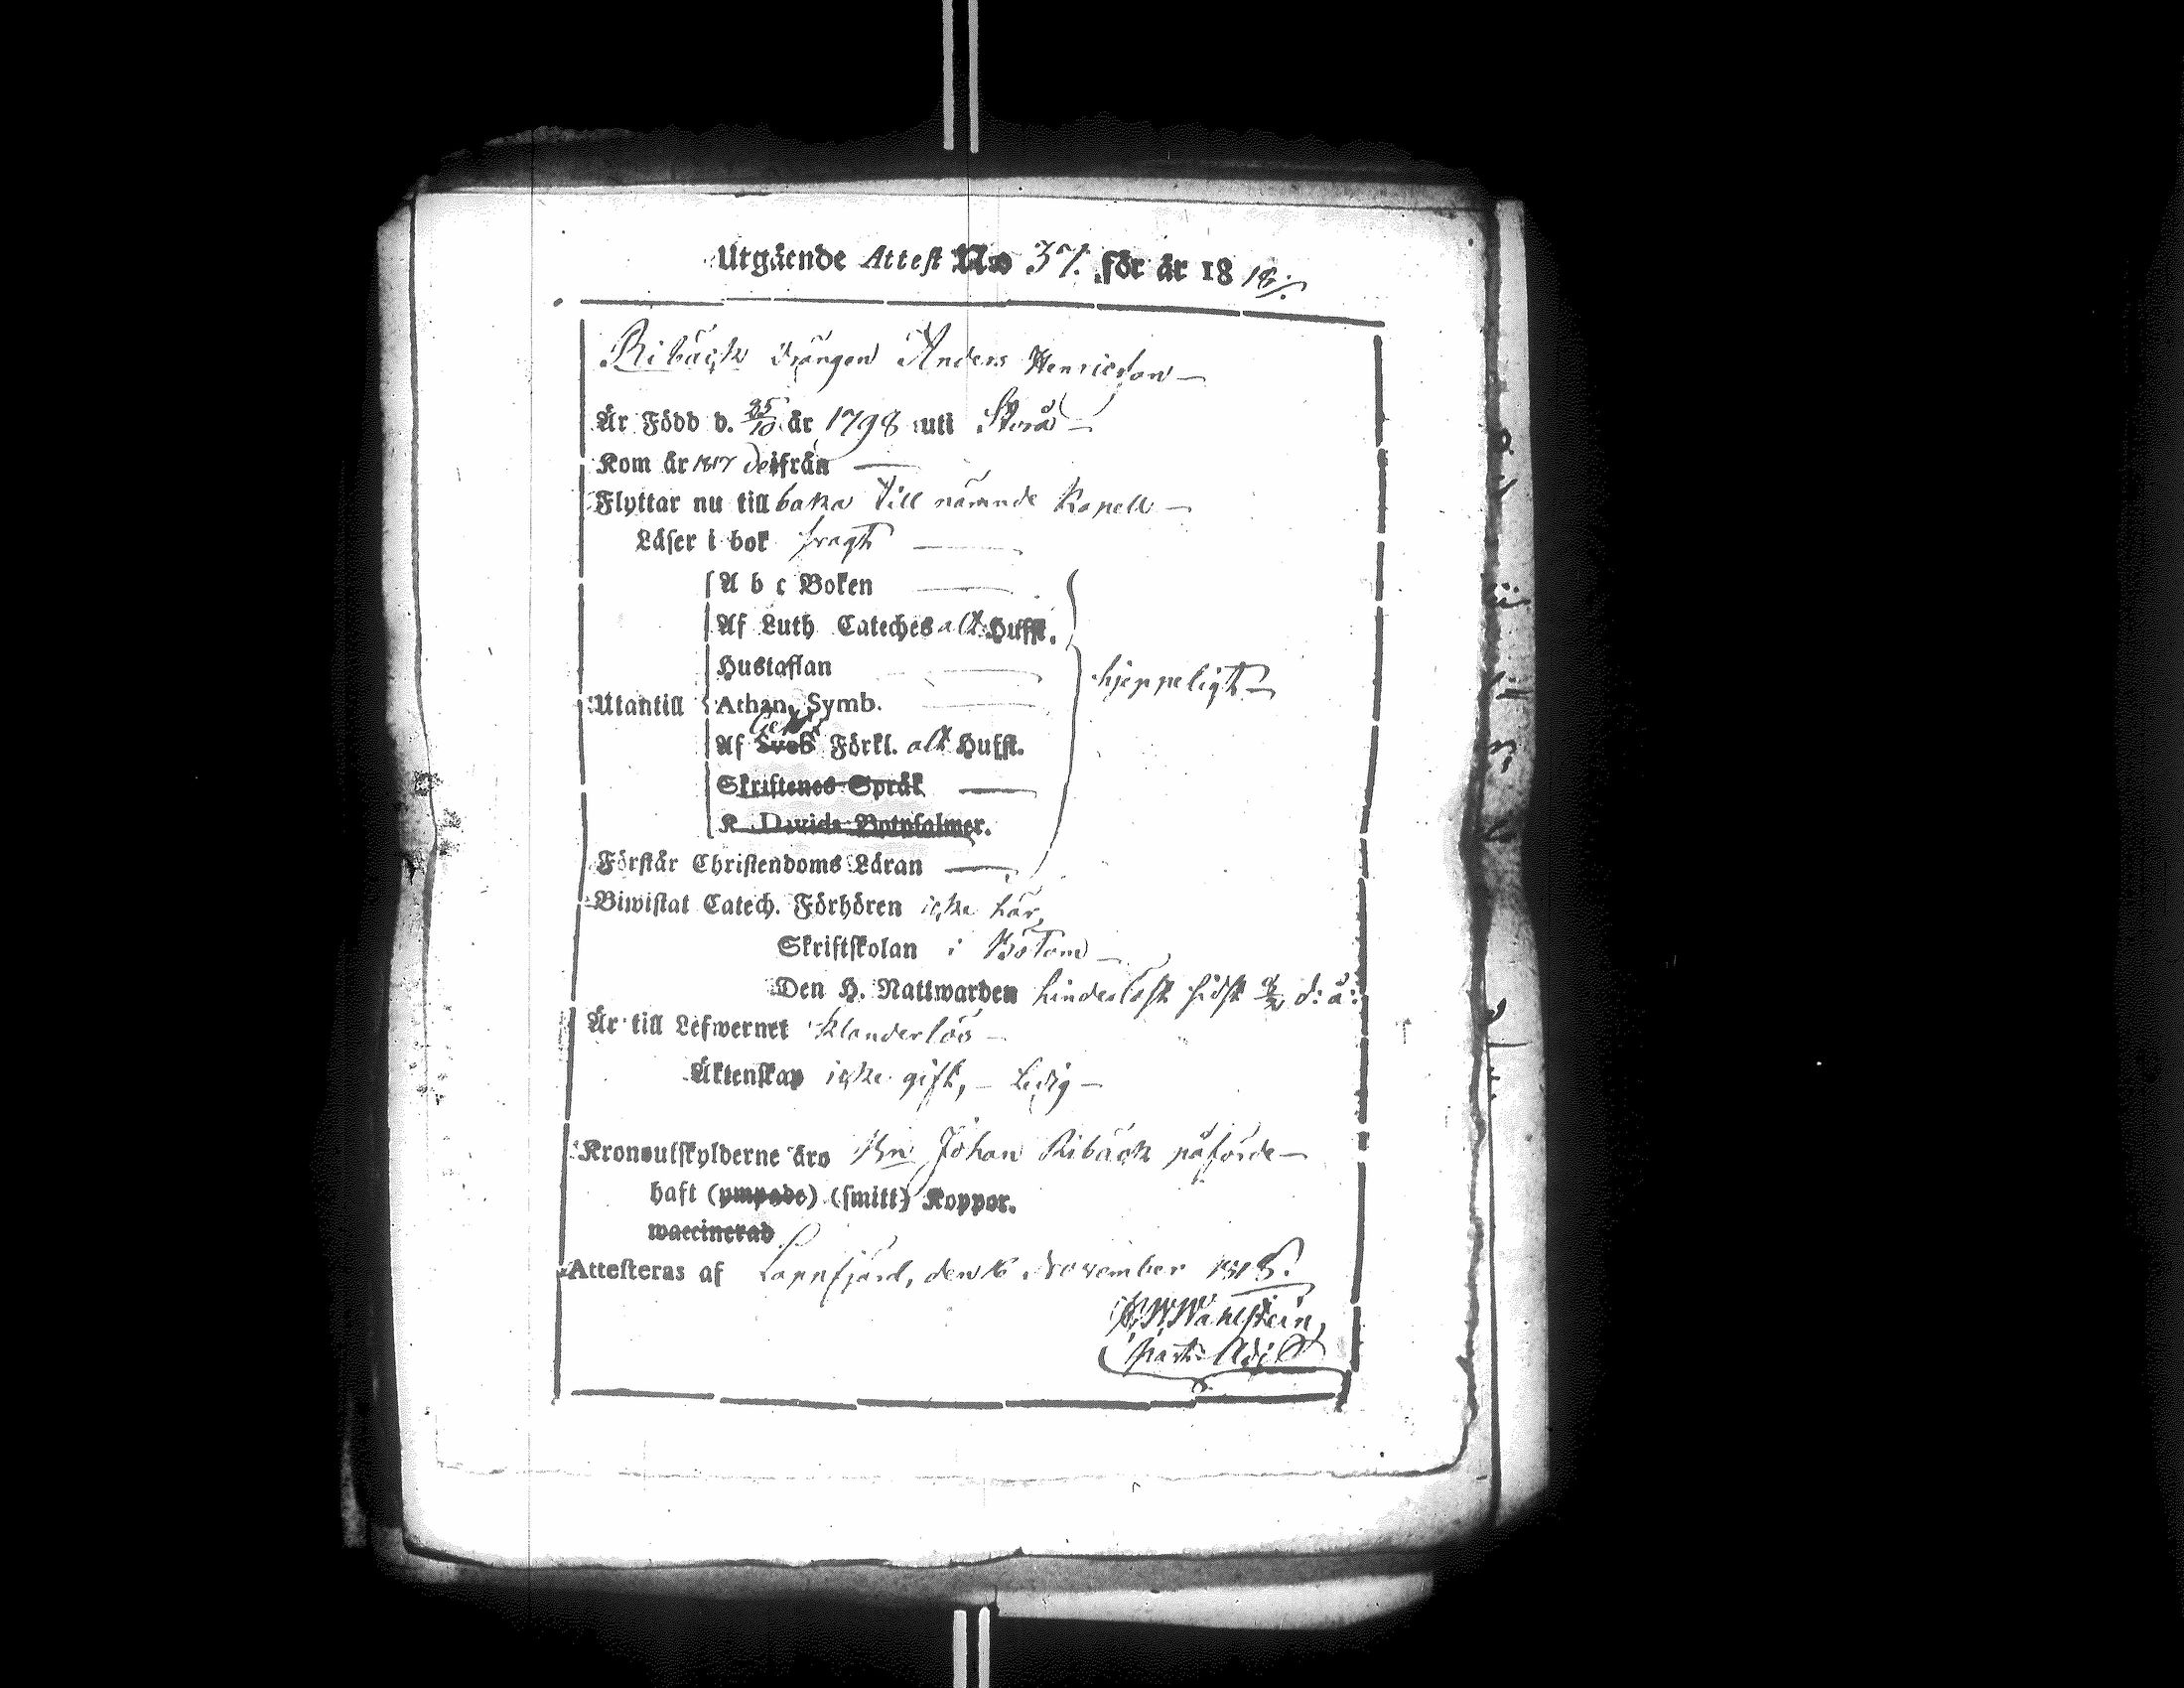 Utgående Attest No 37. för år 1818.
Ribäck drängen Anders Henricson
Är Född d. 25/10 år 1798 uti Storå
Kom år 1817 deifrån
Flyttar nu till baka till nämnde Kapell
Läser i bok
A b c Boken
Af Luth Cateches all Hufst.
Hustaflan
hjeppeligt
Utantill Athan. Symb.
Af Sveb Förkl. all Hufst.
Skriftenes Språk
K Davids Botpsalmer.
Förstår Christendoms Läran
Biwistat Catech. Förhören icke här,
Skriftskolan i Bötom
Den H. Nattwarden hinderlöst sidst d: å:
Är till Lefwernet klanderlös
Äktenskap icke gift, - Ledig -
Kronoutskylderne äro Bn Johan Ribäck påförde
haft (ympade) (smitt) Koppor.
waccinerad
Attesteras af Lappfjärd, den 16 November 1818.
Wahlstein,
Past: Adj: